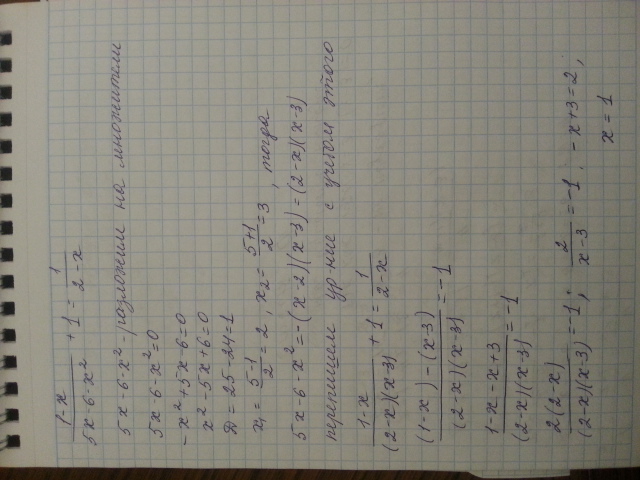 (1-x)/(5x-6-x²) + 1 = 1/(2-x)
5x-6-x² - разложим на множители
5x-6-x²=0
-x²+5x-6=0
x²-5x+6=0
D=25-24=1
x₁ = (5-1)/2 = 2, x₂ = (5+1)/2 = 3, тогда
5x-6-x² = -(x-2)(x-3) = (2-x)(x-3)
перепишем ур-ние с учетом этого
(1-x)/((2-x)(x-3)) + 1 = 1/(2-x)
((1-x)-(x-3))/((2-x)(x-3)) = -1
(1-x-x+3)/((2-x)(x-3)) = -1
2(2-x)/((2-x)(x-3)) = -1; 2/(x-3) = -1. -x+3=2;
x=1